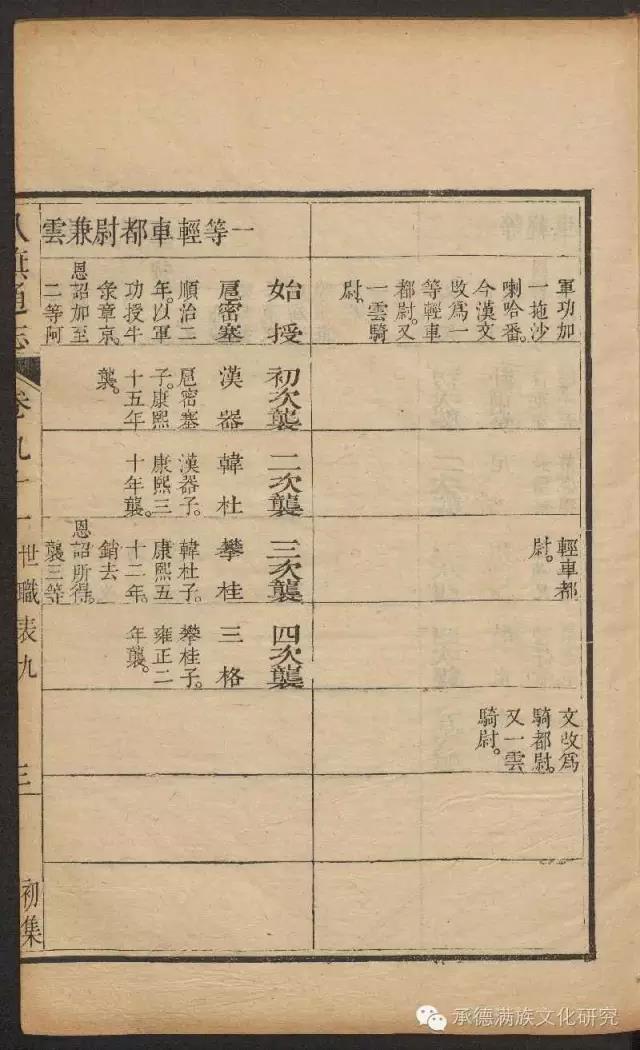 軍功加
一拖沙
喇哈番。
今漢文
改爲一
等輕車
都尉。又
一雲騎
尉。
輕車都
尉。
文改爲
騎都尉。
又一雲
騎尉。
一等輕車都尉兼雲
始授
巵密塞
順治二
年。以軍
功授牛
彔章京。
恩詔加至
二等阿
初次襲
漢器
巵密塞
子。康熙
十五年
襲。
二次襲
韓杜
漢器子。
康熙三
十年襲。
三次襲
攀桂
韓杜子。
康熙五
十二年。
銷去
恩詔所得。
襲三等
四次襲
三格
攀桂子。
雍正二
年襲。
八旗通志 卷九十一 世職表九 三 初集
承德满族文化研究